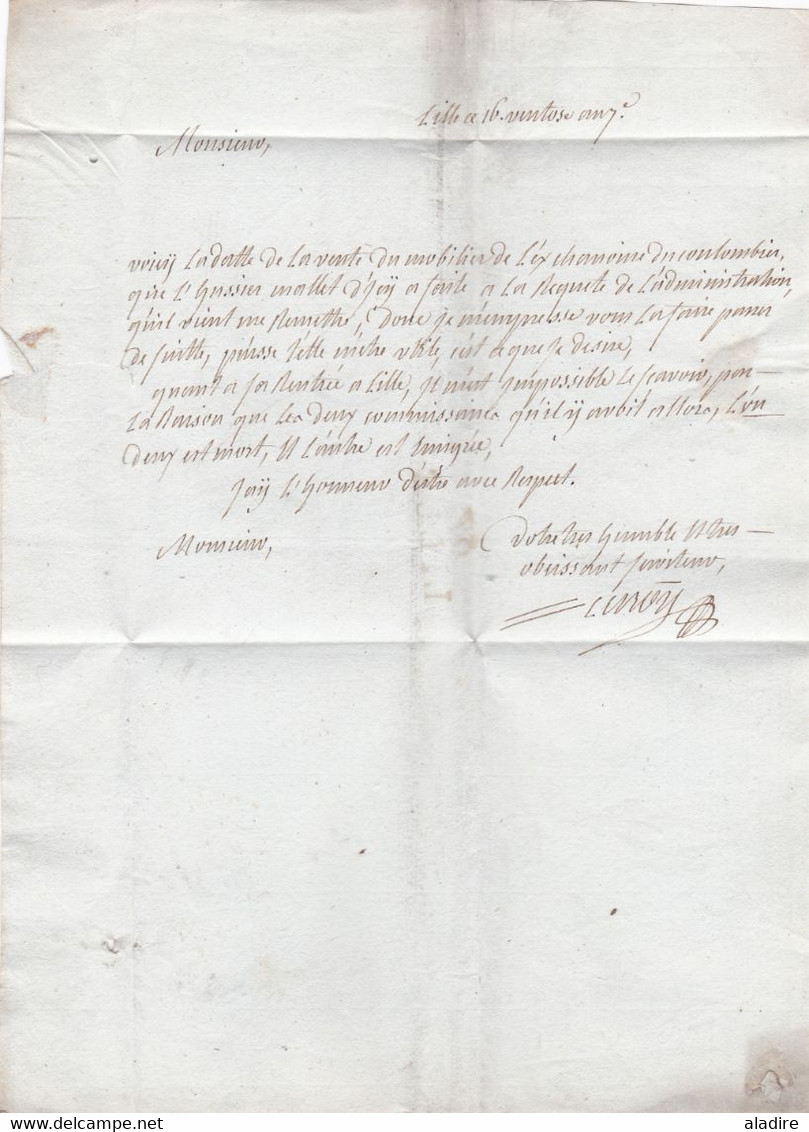 Lille ce 16. ventose an 7.e
Monsieur,
voicy La datte de La vente du mobilier de L'éx chanoine du coulombier,
que L'Hussier mallet d'Joy a faite a La Requete de L'administration,
qu'il vient me Remettre, donc je m'empresse vous La faire passer
de suitte, puisse t'elle m'être utile, c'est ce que Je desire,
quant a sa Rentrée a Lille, il m'est jmpossible Le scavoir, par
La Raison que Les deux commissaires qu'il y avoit allors, L'un
deux est mort, et L'autre est Emigrée,
Jaÿ L'Honneur d'être avec Respect.
Monsieur,
Votre tres Humble et tres
obeissant serviteur,
Leroÿ
aladire
© delcampe.net